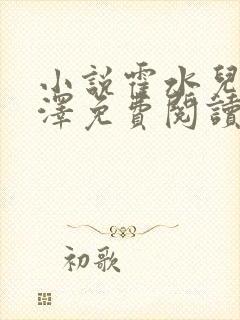 小說霍水兒
澤免費閱讀
初歌